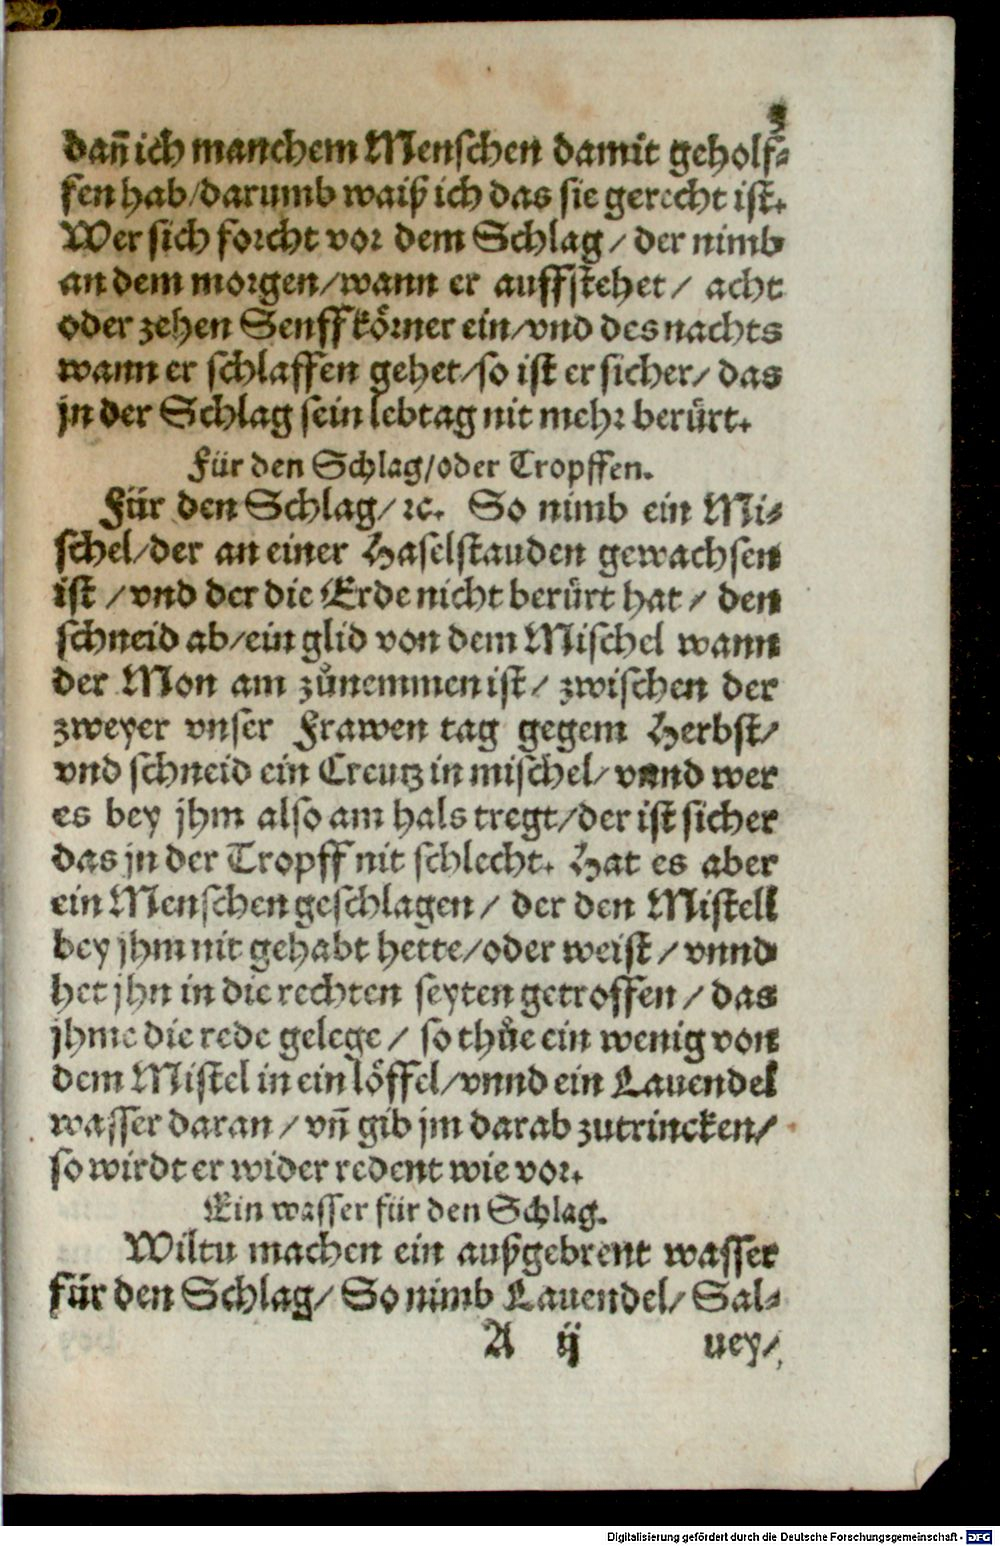 3
dañ ich manchem Menschen damit geholf⸗
fen hab/darumb waiß ich das sie gerecht ist.
Wer sich forcht vor dem Schlag/ der nimb
an dem morgen/wann er auffstehet/ acht
oder zehen Senffkörner ein/vnd des nachts
wann er schlaffen gehet/so ist er sicher/ das
jn der Schlag sein lebtag nit mehr berürt.
Für den Schlag/oder Tropffen.
Für den Schlag/ ꝛc. So nimb ein Mi⸗
schel/der an einer Haselstauden gewachsen
ist /vnd der die Erde nicht berürt hat/ den
schneid ab/ein glid von dem Mischel wann
der Mon am zůnemmen ist/ zwischen der
zweyer vnser Frawen tag gegem Herbst/
vnd schneid ein Creutz in mischel/vnnd wer
es bey jhm also am hals tregt/der ist sicher
das jn der Tropff nit schlecht. Hat es aber
ein Menschen geschlagen/ der den Mistell
bey jhm nit gehabt hette/oder weist/ vnnd
het jhn in die rechten seyten getroffen/ das
jhme die rede gelege/ so thůe ein wenig von
dem Mistel in ein löffel/vnnd ein Lauendel
wasser daran/ vñ gib jm darab zutrincken/
so wirdt er wider redent wie vor.
Ein wasser für den Schlag.
Wiltu machen ein außgebrent wasser
für den Schlag/ So nimb Lauendel/ Sal⸗
A ij uey/
Digitalisierung gefördert durch die Deutsche Forschungsgemeinschaft - DFG